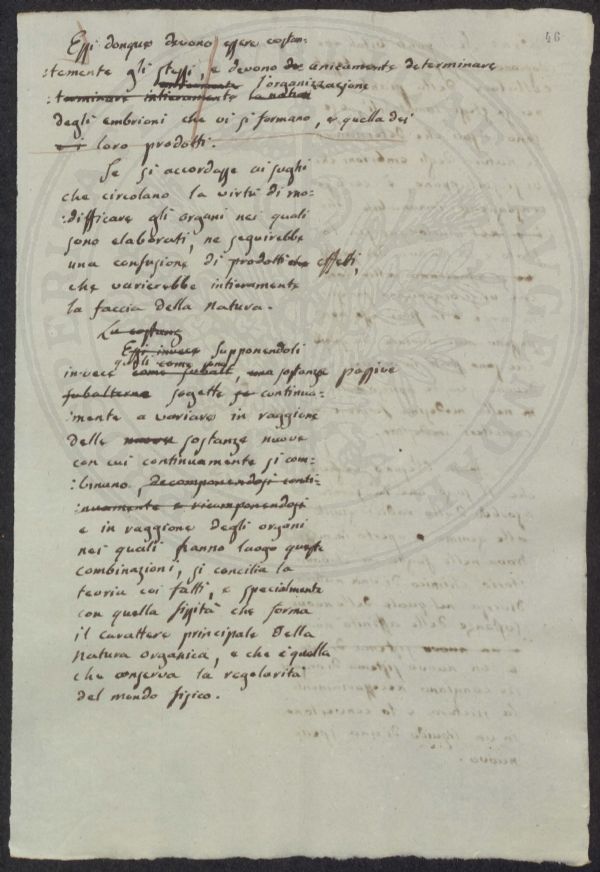 46
Essi donque devono essere costan-
:temente gli stessi, e devono de unicamente determinare
interamente l'organizzazione
:terminare intieramente la natura
degli embrioni che vi si formano, e quella dei
e i loro prodotti.
Se si accordasse ai sughi
che circolano la virtù di mo-
:difficare gli organi nei quali
sono elaborati, ne seguirebbe
una confusione di prodotti che effetti,
che varierebbe intieramente
la faccia della natura.
La costanz
Essi invece supponendoli
quali come sono
invece come subalt, una sostanze passive
subalterne sogette se continua-
:mente a variare in raggione
delle nuove sostanze nuove
con cui continuamente si com-
:binano, decomponendosi conti-
:nuamente e ricomponendosi
e in raggione degli organi
nei quali hanno luogo queste
combinazioni, si concilia la
teoria coi fatti, e specialmente
con quella fissità che forma
il carattere principale della
natura organica, e che è quella
che conserva la regolarità
del mondo fisico.